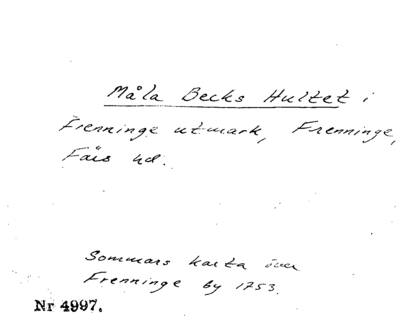 Måla Becks Hultet i
Frenninge utmark, Frenninge,
Färs hd.
Sommars karta över
Frenninge by 1753.
Nr 4997.